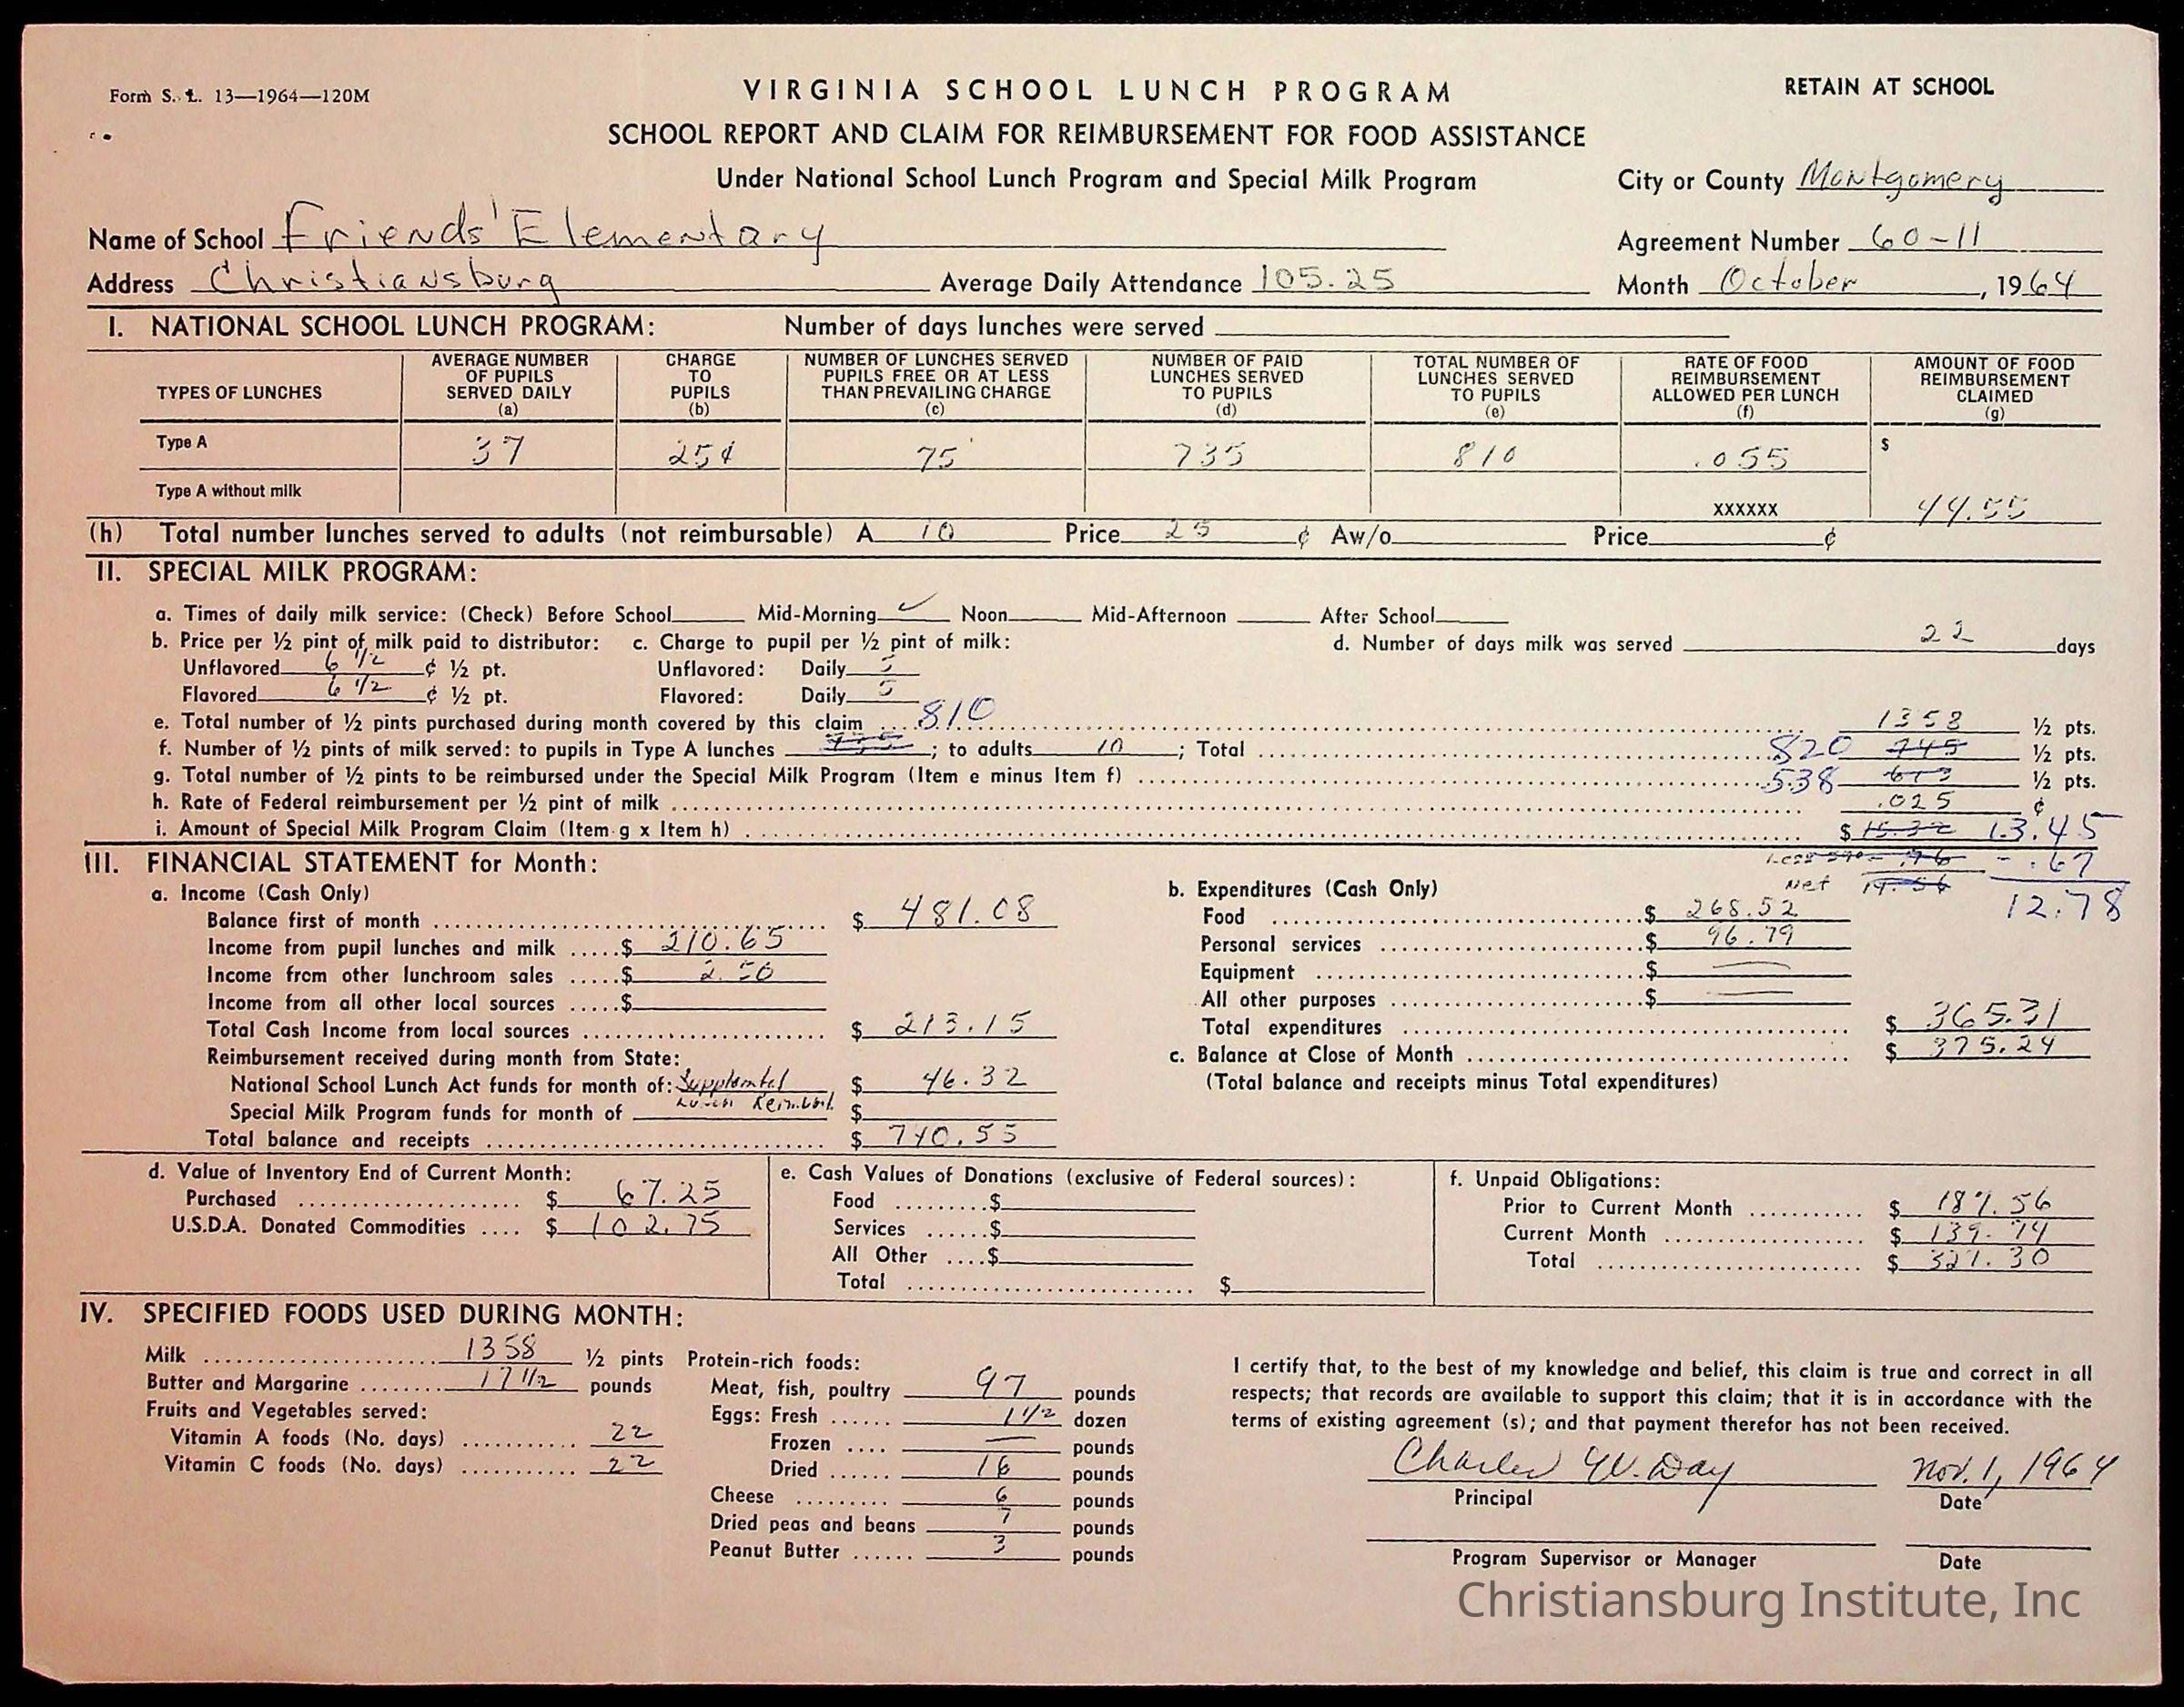 Form S. L. 13—1964—120M
VIRGINIA SCHOOL LUNCH PROGRAM
RETAIN AT SCHOOL
SCHOOL REPORT AND CLAIM FOR REIMBURSEMENT FOR FOOD ASSISTANCE
Under National School Lunch Program and Special Milk Program
City or County Montgomery
Name of School Friends' Elementary
Agreement Number 60-11
Address Christiansburg Average Daily Attendance 105.25 Month October, 1964
I. NATIONAL SCHOOL LUNCH PROGRAM: Number of days lunches were served
TYPES OF LUNCHES
AVERAGE NUMBER OF PUPILS SERVED DAILY (a)
CHARGE TO PUPILS (b)
NUMBER OF LUNCHES SERVED PUPILS FREE OR AT LESS THAN PREVAILING CHARGE (c)
NUMBER OF PAID LUNCHES SERVED TO PUPILS (d)
TOTAL NUMBER OF LUNCHES SERVED TO PUPILS (e)
RATE OF FOOD REIMBURSEMENT ALLOWED PER LUNCH (f)
AMOUNT OF FOOD REIMBURSEMENT CLAIMED (g)
Type A 37 25¢ 75 735 810 .055 $
Type A without milk XXXXXX 44.55
(h) Total number lunches served to adults (not reimbursable) A 10 Price 25 ¢ Aw/o Price ¢
II. SPECIAL MILK PROGRAM:
a. Times of daily milk service: (Check) Before School Mid-Morning ✓ Noon Mid-Afternoon After School
b. Price per ½ pint of milk paid to distributor: c. Charge to pupil per ½ pint of milk: d. Number of days milk was served 22 days
Unflavored 6 1/2 ¢ ½ pt. Unflavored: Daily 5
Flavored 6 1/2 ¢ ½ pt. Flavored: Daily 5
e. Total number of ½ pints purchased during month covered by this claim 1358 ½ pts.
810
f. Number of ½ pints of milk served: to pupils in Type A lunches 735; to adults 10; Total 820 745 ½ pts.
g. Total number of ½ pints to be reimbursed under the Special Milk Program (Item e minus Item f) 538 613 ½ pts.
h. Rate of Federal reimbursement per ½ pint of milk .025 ¢
i. Amount of Special Milk Program Claim (Item g x Item h) $ 15.32 13.45
Less .76 - .67
Net 14.56 12.78
III. FINANCIAL STATEMENT for Month:
a. Income (Cash Only)
Balance first of month $ 481.08
Income from pupil lunches and milk $ 210.65
Income from other lunchroom sales $ 2.50
Income from all other local sources $
Total Cash Income from local sources $ 213.15
Reimbursement received during month from State:
National School Lunch Act funds for month of: Supplemtal $ 46.32
Lunch Reimbut.
Special Milk Program funds for month of $
Total balance and receipts $ 740.55
b. Expenditures (Cash Only)
Food $ 268.52
Personal services $ 96.79
Equipment $ —
All other purposes $ —
Total expenditures $ 365.31
c. Balance at Close of Month $ 375.24
(Total balance and receipts minus Total expenditures)
d. Value of Inventory End of Current Month:
Purchased $ 67.25
U.S.D.A. Donated Commodities $ 102.75
e. Cash Values of Donations (exclusive of Federal sources):
Food $
Services $
All Other $
Total $
f. Unpaid Obligations:
Prior to Current Month $ 187.56
Current Month $ 139.74
Total $ 327.30
IV. SPECIFIED FOODS USED DURING MONTH:
Milk 1358 ½ pints
Butter and Margarine 17 1/2 pounds
Fruits and Vegetables served:
Vitamin A foods (No. days) 22
Vitamin C foods (No. days) 22
Protein-rich foods:
Meat, fish, poultry 97 pounds
Eggs: Fresh 1 1/2 dozen
Frozen — pounds
Dried 16 pounds
Cheese 6 pounds
Dried peas and beans 7 pounds
Peanut Butter 3 pounds
I certify that, to the best of my knowledge and belief, this claim is true and correct in all
respects; that records are available to support this claim; that it is in accordance with the
terms of existing agreement (s); and that payment therefor has not been received.
Charles W. Day Nov. 1, 1964
Principal Date
Program Supervisor or Manager Date
Christiansburg Institute, Inc